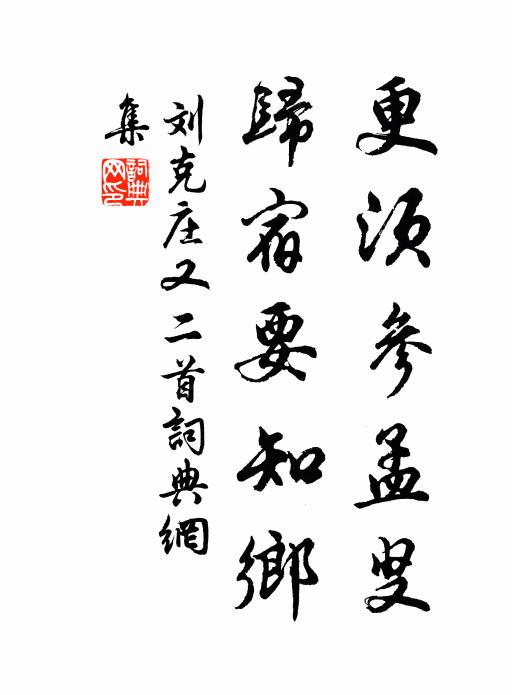 更须參孟叟
歸宿要知鄉
刘克庄又二首詞典網
集
詞典
网印